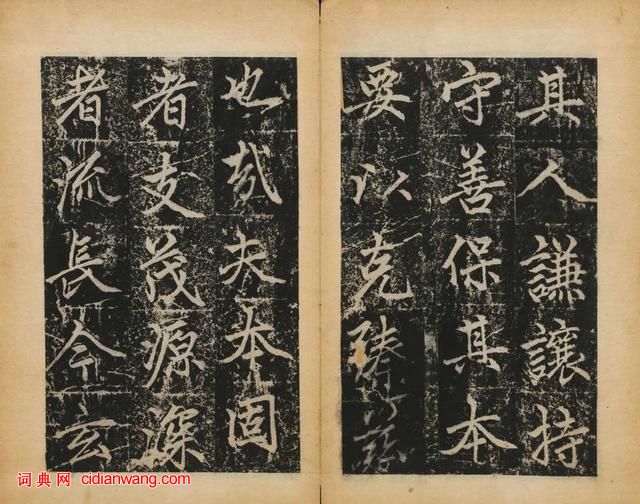 其人謙讓持
守善保其本
要以克臻
也哉夫本固
者支茂源深
者流長今玄
词典网 cidianwang.com